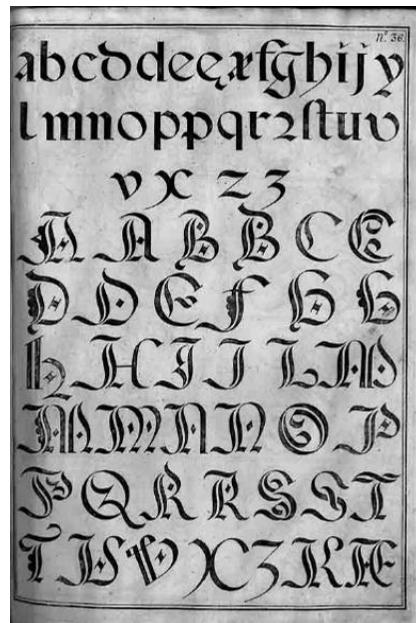 Nº 36.
abcdꝺdeeęæfghijy
lmnoppqrꝛſtuvʋ
vx zʒ
A A B B C C
D D E F G G
H H I I L M
M M N N O P
P Q R R S S T
T U V X Z K Æ